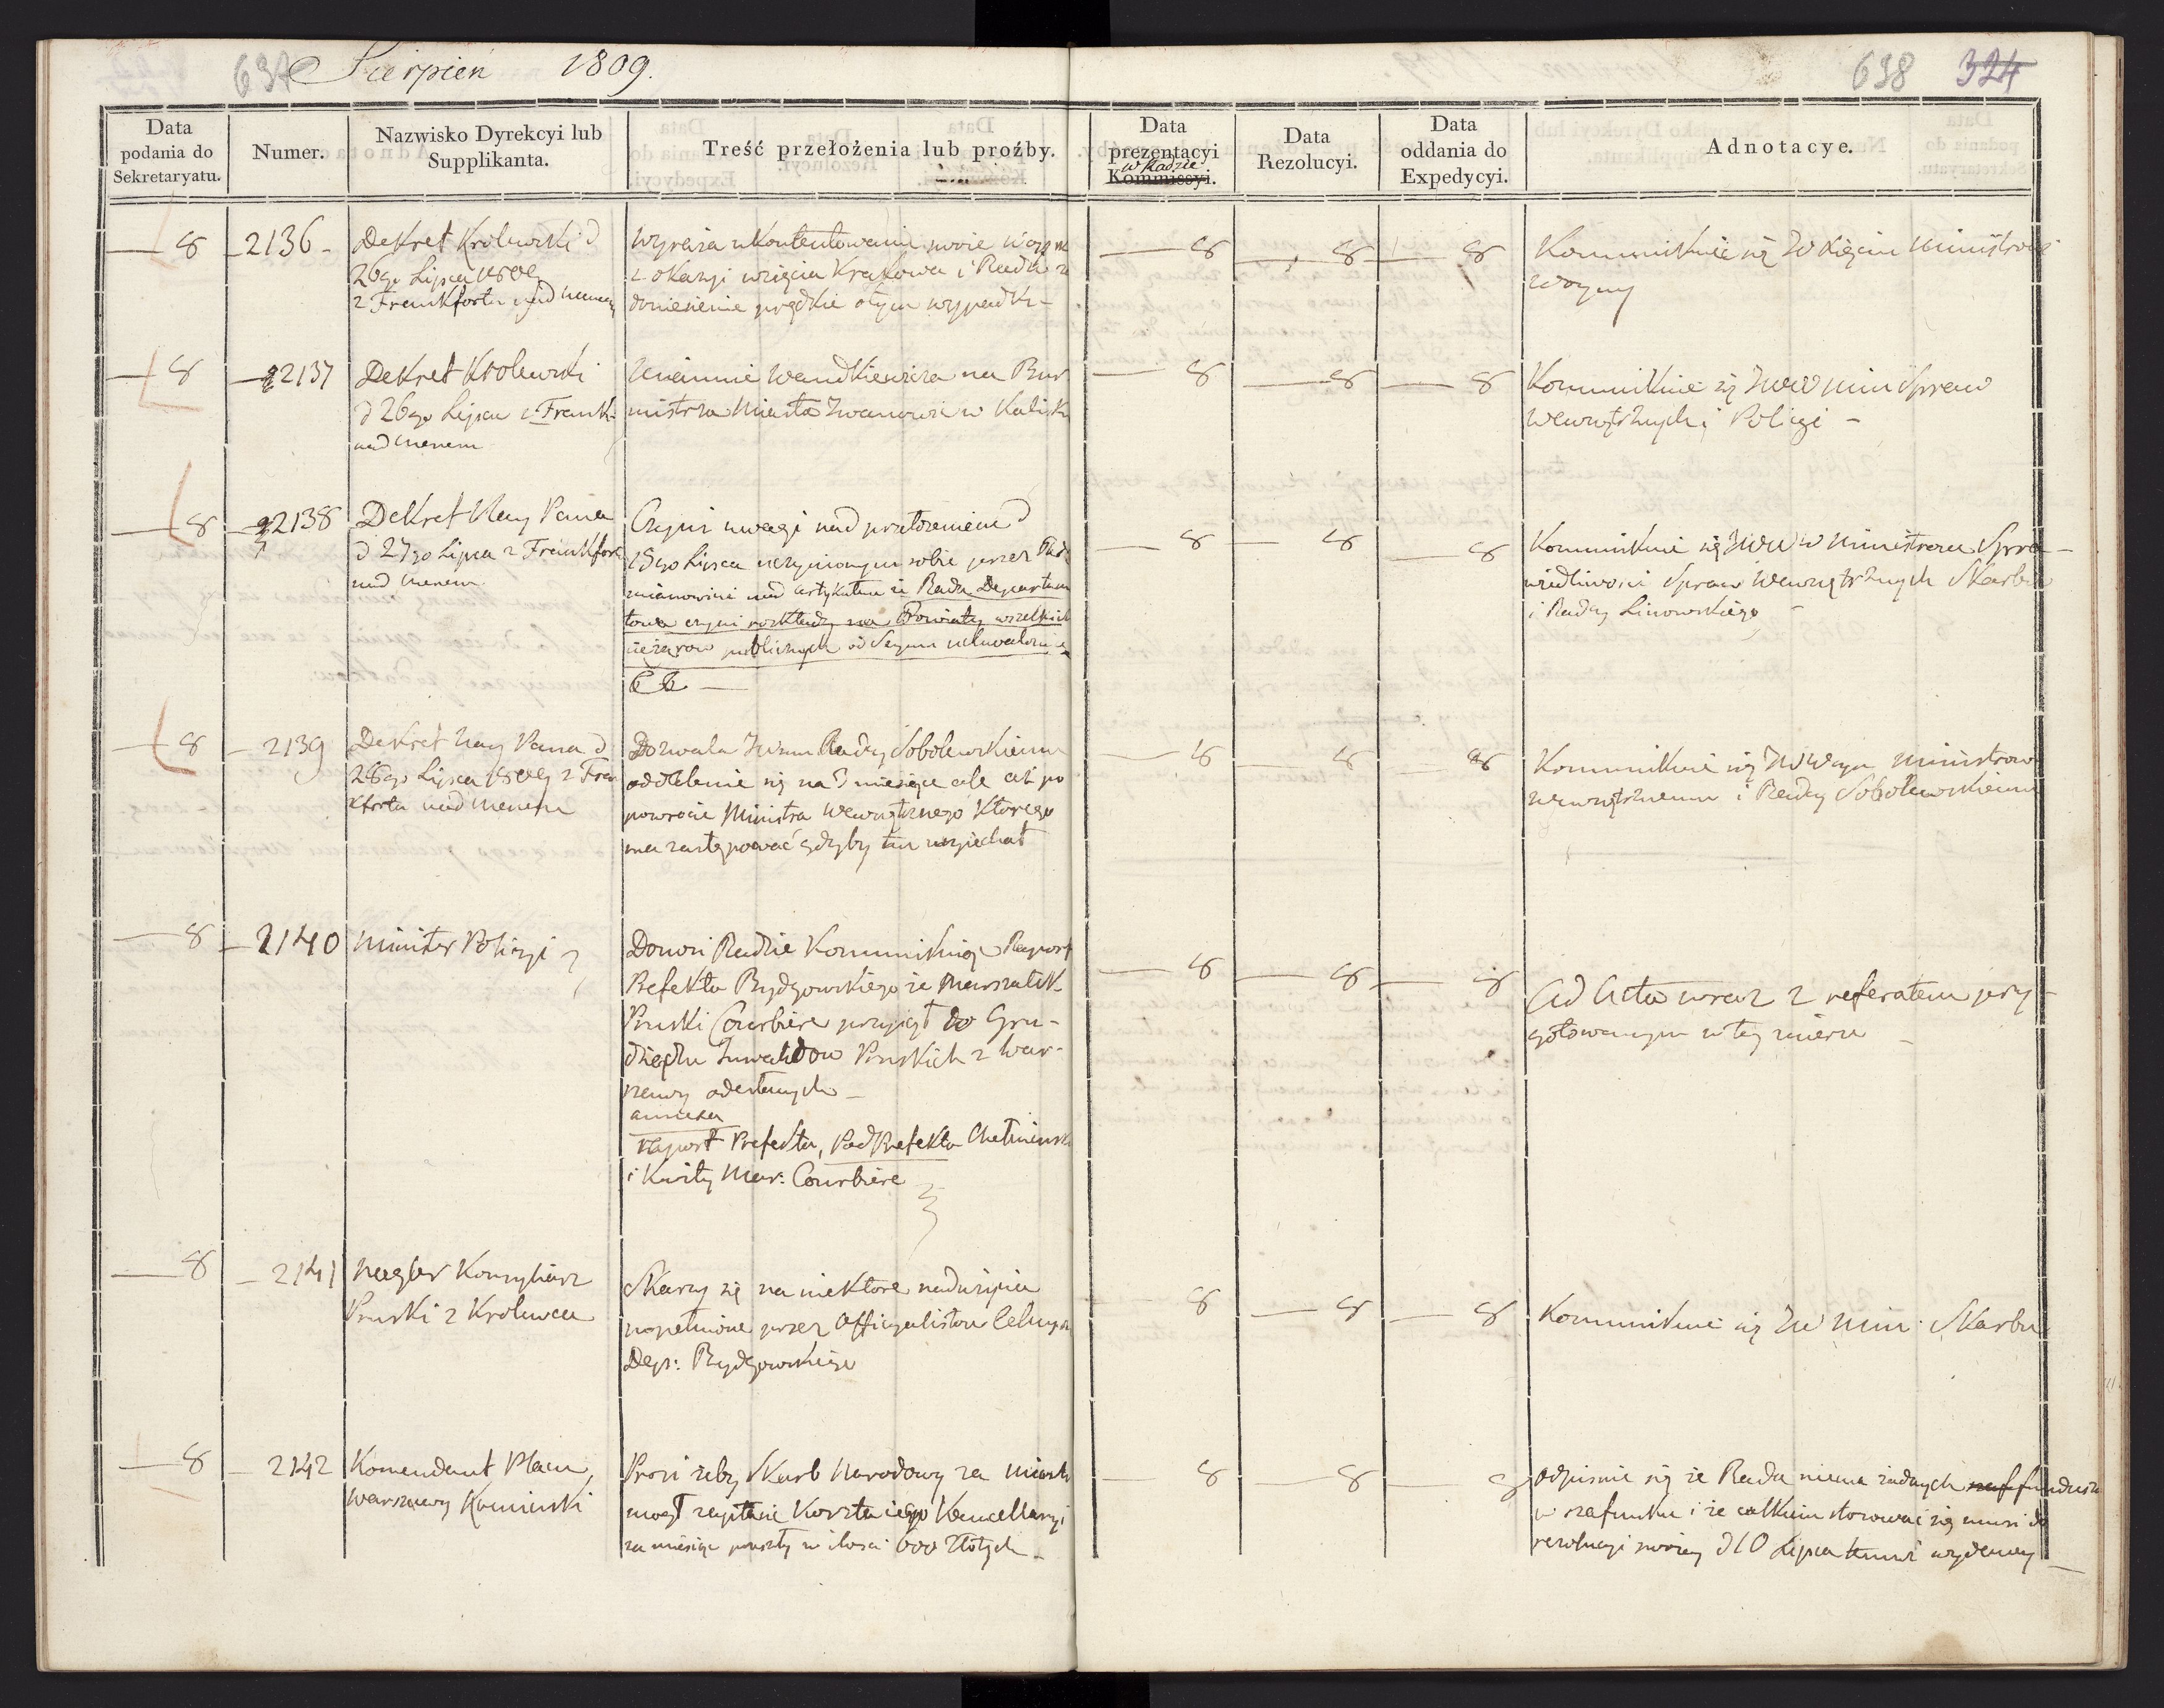 637 Sierpień 1809.
638 324
Data podania do Sekretaryatu.
Numer.
Nazwisko Dyrekcyi lub Supplikanta.
Treść przełożenia lub proźby.
Data prezentacyi w Radzie Kommissyi.
Data Rezolucyi.
Data oddania do Expedycyi.
Adnotacye.
— 8 — 2136 —
Dekret Krolewski d
26go Lipca 1809
z Frankfortu nad Menem
Wyraża ukontentowanie swoie
z okazyi wzięcia Krakowa i Radzie za
doniesienie prędkie o tym wypadku —
— 8 — 8 — 8
Kommunikuie się Xięciu Ministrowi
woyny
— 8 — 2137
Dekret Krolewski
d 26go Lipca z Frank.
nad Menem
Wandkiewicza na Bur
mistrza Miasta Iwanowic w Kalisk
— 8 — 8 — 8
Kommunikuie się Min Spraw
Wewnętrznych i Policyi —
— 8 — 2138
Dekret Nay Pana
d 27go Lipca z Frankfort
nad Menem.
Czyni uwagi nad przełożeniem d
18go Lipca uczynionym sobie przez Radę
mianowicie nad artykułem że Rada Departam
towa czyni rozkłady na Powiaty wszelkich
ciężarow publicznych od Seymu uchwalonych
— 8 — 8 — 8
Kommunikuie się Ministrom Spra —
wiedliwości Spraw Wewnętrznych Skarbu
i Radcy Linowskiego —
— 8 — 2139
Dekret Nay Pana d
26go Lipca 1809 z Fran
kfortu nad Menem
Dozwala Radcy Sobolewskiemu
oddalenie się na 3 miesiące ale aż po
powrocie Ministra Wewnętrznego ktorego
ma zastępować gdyby tu wyjechał
— 8 — 8 — 8
Kommunikuie się Ministrowi
wewnętrznemu i Radcy Sobolewskiemu
— 8 — 2140
Minister Policyi
Donosi Radzie kommunikuiąc Raport
Prefekta Bydgowskiego że Marszałek
Pruski Courbiere przyiął do Gru-
dziądzu Inwalidow Pruskich z War-
szawy odesłanych —
annexa
Raport Prefekta, Pod Prefekta Chełminsk
i Kwity Mar: Courbiere
— 8 — 8 — 8
Ad Acta wraz z referatem przy —
gotowanym w tey mierze —
— 8 — 2141
Nagler Konsyliarz
Pruski z Krolewca
Skarzy się na niektore nadużycia
popełnione przez Officyalistow Celnych
Dep: Bydgowskiego
— 8 — 8 — 8
Kommunikuie się JW Min: Skarbu
— 8 — 2142
Komendant Placu,
Warszawy Kamieński
Prosi żeby Skarb Narodowy za Miasto
mogł zapłacić Koszta iego Kancellaryi
za miesiąc przeszły w ilości 600 Złotych —
— 8 — 8 — 8
odpisuie się że Rada niema żadnych funduszu
w szafunku i że całkiem stosować się musi do
rezolucyi swoiey d 10 Lipca wydaney —